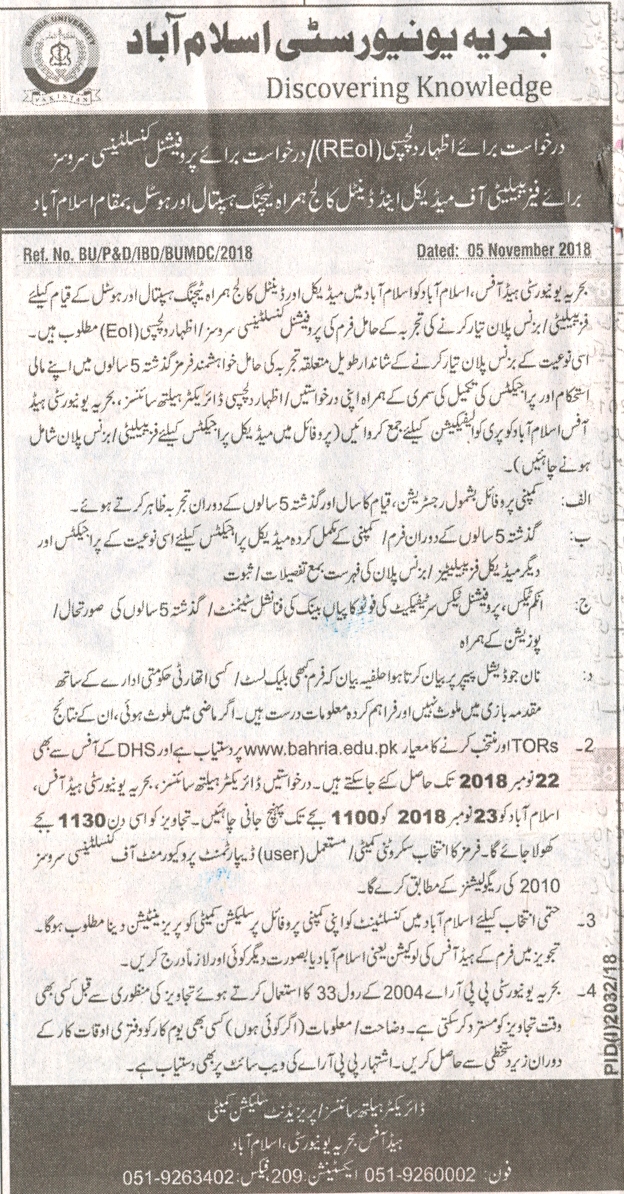 BAHRIA UNIVERSITY
PAKISTAN
بحریہ یونیورسٹی اسلام آباد
Discovering Knowledge
درخواست برائے اظہار دلچسپی (REoI)/درخواست برائے پروفیشنل کنسلٹینسی سروسز
برائے فیزیبیلیٹی آف میڈیکل اینڈ ڈینٹل کالج ہمراہ ٹیچنگ ہسپتال اور ہوسٹل بمقام اسلام آباد
Ref. No. BU/P&D/IBD/BUMDC/2018
Dated: 05 November 2018
بحریہ یونیورسٹی ہیڈ آفس، اسلام آباد کو اسلام آباد میں میڈیکل اور ڈینٹل کالج ہمراہ ٹیچنگ ہسپتال اور ہوسٹل کے قیام کیلئے
فزیبیلیٹی/ بزنس پلان تیار کرنے کی تجربہ کے حامل فرم کی پروفیشنل کنسلٹینسی سروسز/ اظہار دلچسپی (EoI) مطلوب ہیں۔
اسی نوعیت کے بزنس پلان تیار کرنے کے شاندار طویل متعلقہ تجربہ کی حامل خواہشمند فرمز گذشتہ 5 سالوں میں اپنے مالی
استحکام اور پراجیکٹس کی تکمیل کی سمری کے ہمراہ اپنی درخواستیں/ اظہار دلچسپی ڈائریکٹر ہیلتھ سائنسز، بحریہ یونیورسٹی ہیڈ
آفس اسلام آباد کو پری کوالیفیکیشن کیلئے جمع کروائیں (پروفائل میں میڈیکل پراجیکٹس کیلئے فزیبیلیٹی/ بزنس پلان شامل
ہونے چاہئیں)۔
الف: کمپنی پروفائل بشمول رجسٹریشن، قیام کا سال اور گذشتہ 5 سالوں کے دوران تجربہ ظاہر کرتے ہوئے۔
ب: گذشتہ 5 سالوں کے دوران فرم/ کمپنی کے مکمل کردہ میڈیکل پراجیکٹس کیلئے اسی نوعیت کے پراجیکٹس اور
دیگر میڈیکل فزیبیلیٹیز/ بزنس پلان کی فہرست بمع تفصیلات/ ثبوت
ج: انکم ٹیکس، پروفیشنل ٹیکس سرٹیفکیٹ کی فوٹو کاپیاں بینک کی فنانشل سٹیٹمنٹ/ گذشتہ 5 سالوں کی صورتحال/
پوزیشن کے ہمراہ
د: نان جوڈیشل پیپر پر بیان کرتا ہوا حلفیہ بیان کہ فرم کبھی بلیک لسٹ/ کسی اتھارٹی حکومتی ادارے کے ساتھ
مقدمہ بازی میں ملوث نہیں اور فراہم کردہ معلومات درست ہیں۔ اگر ماضی میں ملوث ہوئی، ان کے نتائج
2۔ TORs اور منتخب کرنے کا معیار www.bahria.edu.pk پر دستیاب ہے اور DHS کے آفس سے بھی
22 نومبر 2018 تک حاصل کئے جاسکتے ہیں۔ درخواستیں ڈائریکٹر ہیلتھ سائنسز، بحریہ یونیورسٹی ہیڈ آفس،
اسلام آباد کو 23 نومبر 2018 کو 1100 بجے تک پہنچ جانی چاہئیں۔ تجاویز کو اسی دن 1130 بجے
کھولا جائے گا۔ فرمز کا انتخاب سکروٹنی کمیٹی/ مستعمل (user) ڈیپارٹمنٹ پروکیورمنٹ آف کنسلٹینسی سروسز
2010 کی ریگولیشنز کے مطابق کرے گا۔
3۔ حتمی انتخاب کیلئے اسلام آباد میں کنسلٹینٹ کو اپنی کمپنی پروفائل پر سلیکشن کمیٹی کو پریزینٹیشن دینا مطلوب ہوگا۔
تجویز میں فرم کے ہیڈ آفس کی لوکیشن یعنی اسلام آباد یا بصورت دیگر کوئی اور لازماً درج کریں۔
4۔ بحریہ یونیورسٹی پی پی آر اے 2004 کے رول 33 کا استعمال کرتے ہوئے تجاویز کی منظوری سے قبل کسی بھی
وقت تجاویز کو مسترد کر سکتی ہے۔ وضاحت/ معلومات (اگر کوئی ہوں) کسی بھی یوم کار کو دفتری اوقات کار کے
دوران زیر دستخطی سے حاصل کریں۔ اشتہار پی پی آر اے کی ویب سائٹ پر بھی دستیاب ہے۔
PID(I)2032/18
ڈائریکٹر ہیلتھ سائنسز/پریزیڈنٹ سلیکشن کمیٹی
ہیڈ آفس بحریہ یونیورسٹی، اسلام آباد
فون: 051-9260002 ایکسٹینشن: 209، فیکس: 051-9263402